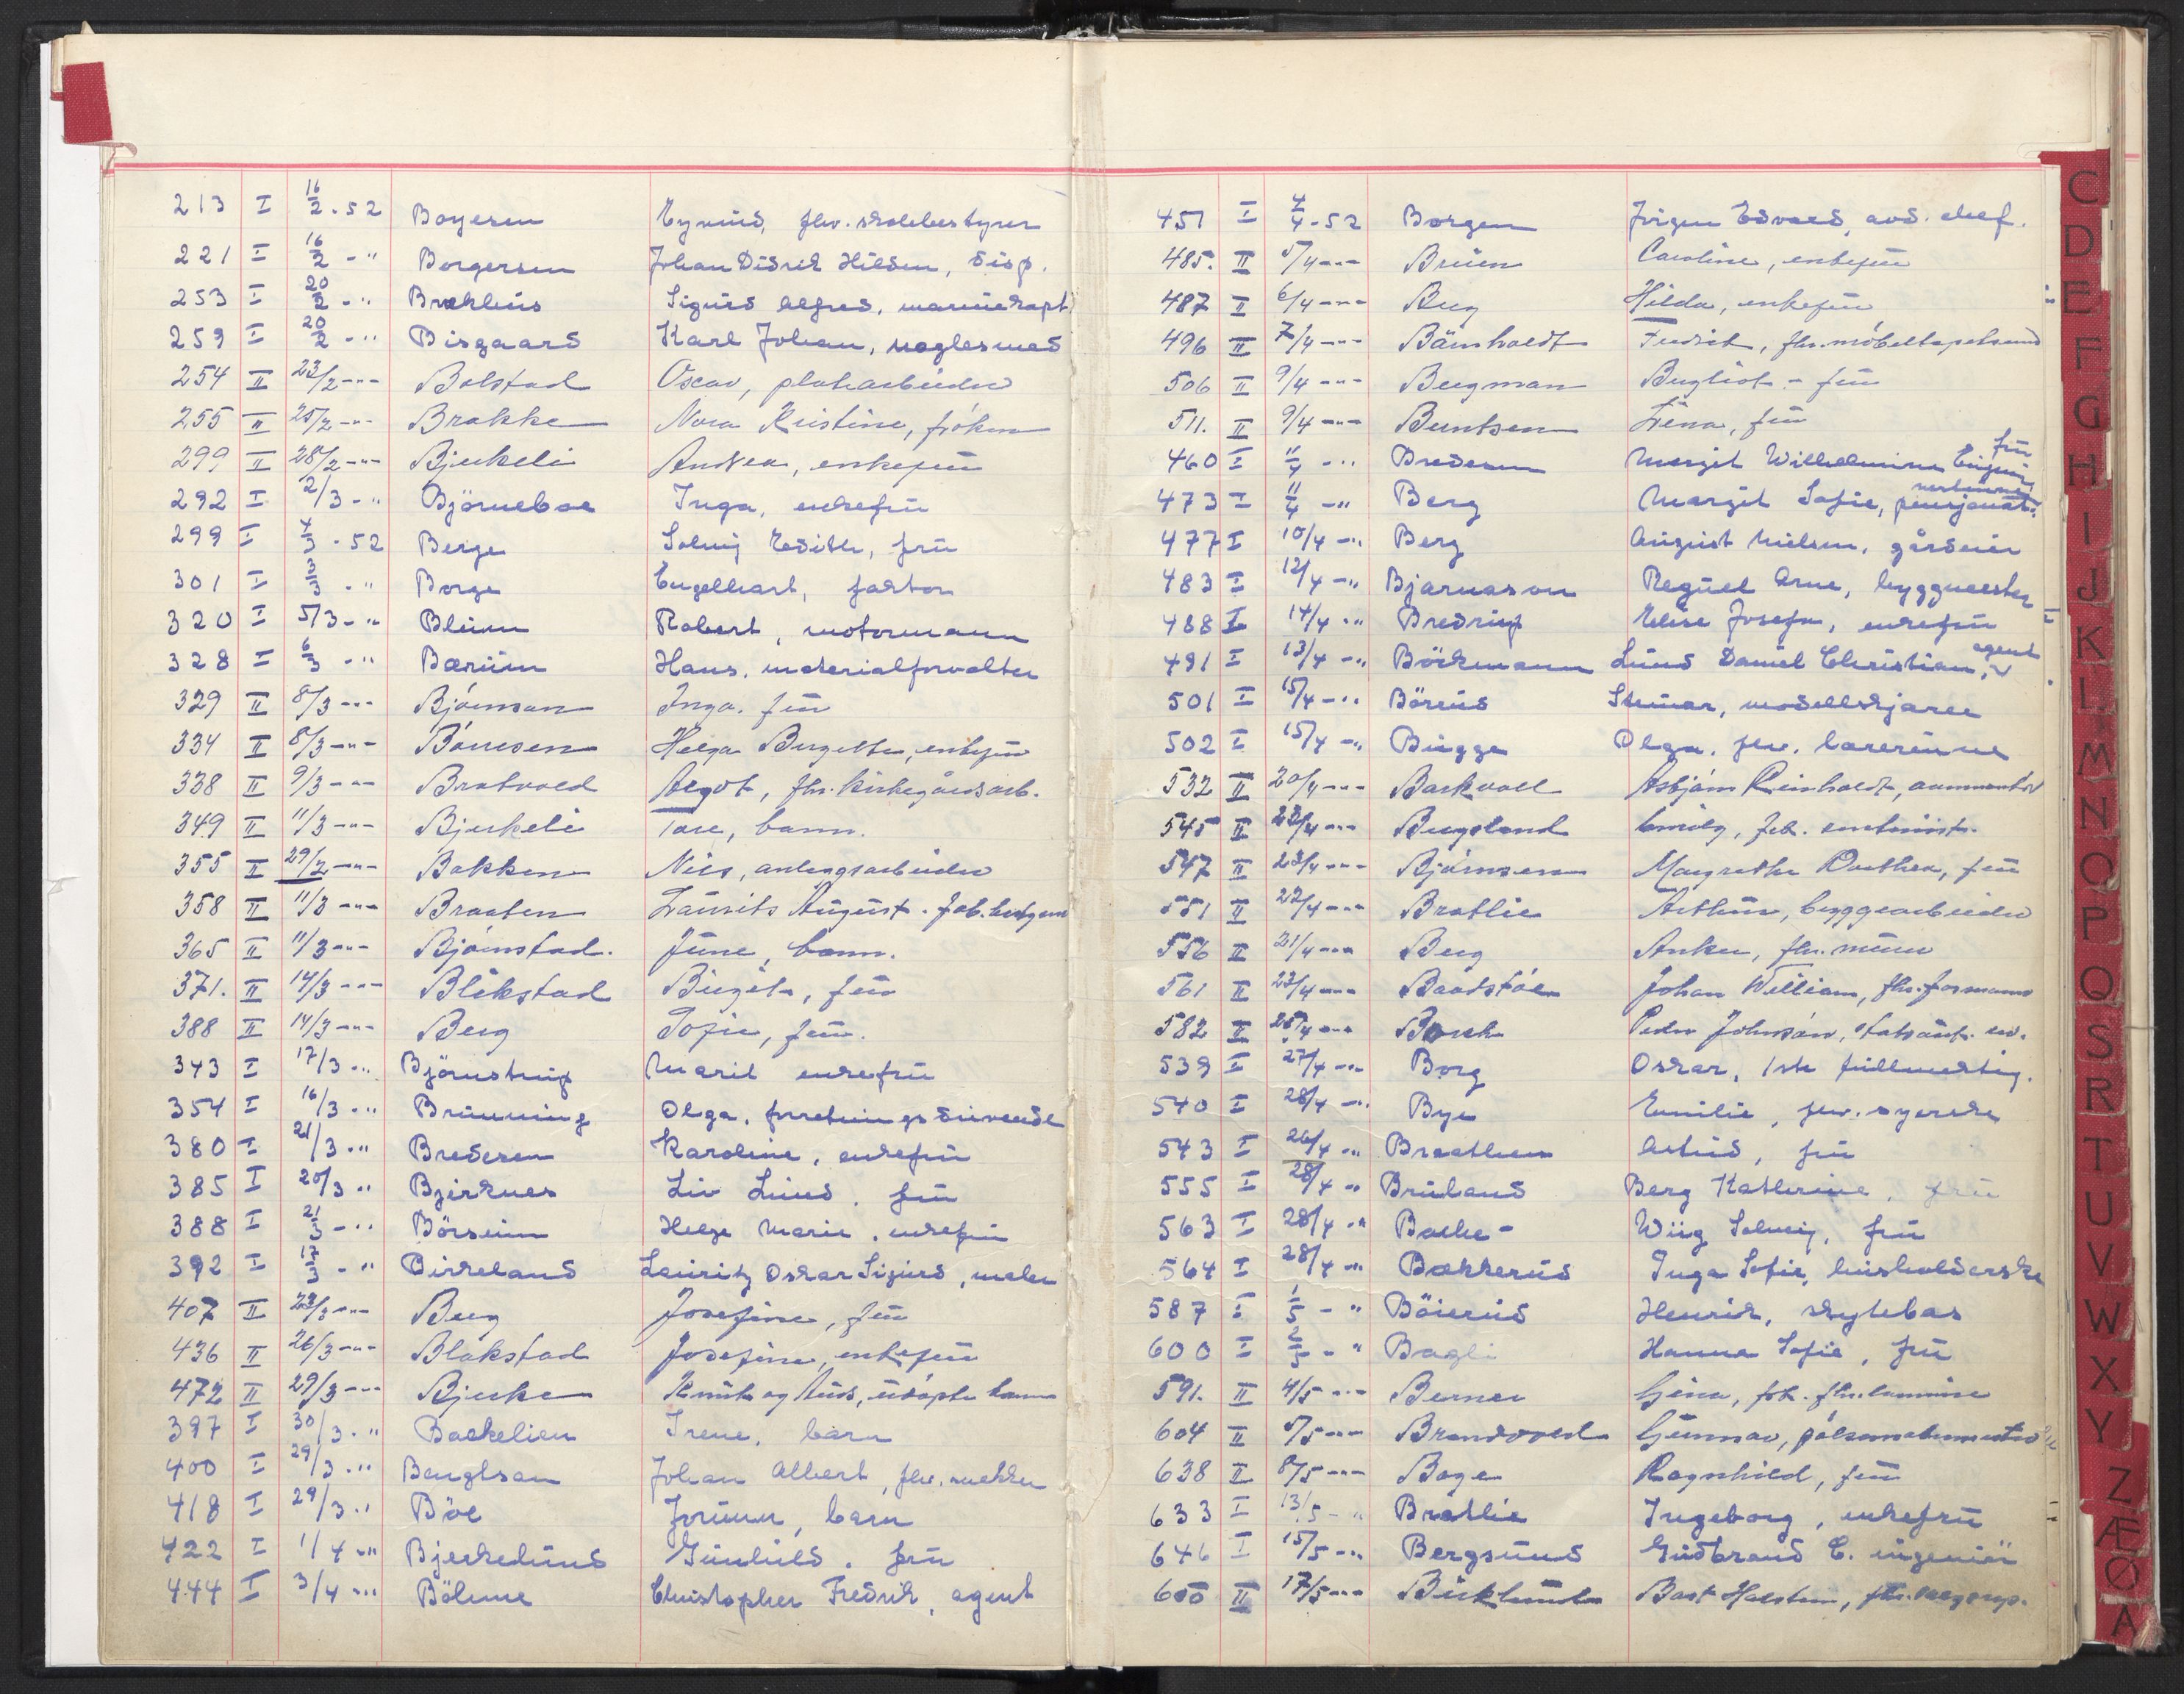 213 I 16/2 - 52 Boyesen Eyvind, fhv. skolebestyrer
221 I 16/2 - " Borgersen Johan Didrik Hilsen, disp.
253 I 20/2 - " Brækhus Sigurd Alfred, marinekapt.
259 I 20/2 - " Bisgaard Karl Johan, naglesmed
254 II 23/2 - " - Bolstad Oscar, platearbeider
255 II 25/2 - " - Brakke Nora Kristine, frøken
299 II 28/2 - " - Bjerkeli Andrea, enkefru
292 I 2/3 - " Björneboe Inga, enkefru
299 I 4/3 - 52 Berge Solveig Edith, fru
301 I 3/3 - " Borge Engelhart, faktor
320 I 5/3 - " Bleiun Robert, motormann
328 I 6/3 - " Bærum Hans, materialforvalter
329 II 8/3 - " - Bjørnson Inga, fru
334 II 8/3 - " - Børresen Helga Bergitte, enkefru
338 II 9/3 - " - Bratvold Algot, fhv. kirkegårdsarb.
349 II 11/3 - " - Bjerkeli Tore, barn.
355 II 29/2 - " - Bakken Nils, anleggsarbeider
358 II 11/3 - " - Braaten Laurits August. fab.
365 II 11/3 - " - Bjørnstad. June, barn.
371. II 14/3 - " - Blikstad Birgit, fru
388 II 14/3 - " - Berg Sofie, fru.
343 I 17/3 - " Björnstrup Marit enkefru
354 I 16/3 - " Brünning Olga, forretningsdrivende
380 I 21/3 - " Bredesen Karoline, enkefru
385 I 20/3 - " Bjerknes Liv Lund, fru
388 I 21/3 - " Börseim Helge Marie, enkefru
392 I 17/3 - " Birkeland Lauritz Oskar Sigurd, maler
407 II 23/3 - " - Berg Josefine, fru
436 II 26/3 - " - Blakstad Josefine, enkefru
472 II 29/3 - " - Bjerke Knut og Aud, udøpte barn
397 I 30/3 - " Baekelien Irene, barn
400 I 29/3 - " Bengtson Johan Albert, fhv. vekter
418 I 29/3 - " Böe Jorunn, barn
422 I 1/4 - " Bjerkelund Gunhild, fru
444 I 3/4 - " Böhme Christopher Fredrik, agent
451 I 4/4 - 52 Borgen Jörgen Edvard, avd. chef.
485. II 5/4 - " - Bruen Caroline, enkefru
487 II 6/4 - " - Berg Hilda, enkefru
496 II 7/4 - " - Bärnholdt Fredrik, fhv. møbeltapetserer
506 II 9/4 - " - Bergman Bergliot - fru
511. II 9/4 - " - Berntsen Lena, fru
fru
460 I 11/4 - " Bredesen Margit Wilhelmine Eugenie
vertinne
473 I 11/4 - " Berg Margit Sofie, pensjonat.
477 I 10/4 - " Berg August Nielsen, gårdeier
483 I 12/4 - " Bjarnason Reguel Arne, byggmester
488 I 14/4 - " Bredrup Elise Josefa, enkefru
agent
491 I 13/4 - " Böckmann Lund Daniel Christian,
501 I 15/4 - " Börud Steinar, modellskjærer
502 I 15/4 - " Bugge Olga, fhv. lærerinne
532 II 20/4 - " - Barkvoll Asbjørn Reinholdt,
545 II 22/4 - " - Bergsland
547 II 23/4 - " - Bjørnsen Margrethe Dorthea, fru
551 II 22/4 - " - Bratlie Arthur, byggearbeider
556 II 21/4 - " - Berg Anker, fhv. murer
561 II 23/4 - " - Baadstøe Johan William, fhv. formann
582 II 25/4 - " - Borch Peder Johnson,
539 I 27/4 - " Borg Oskar, 1ste fullmektig.
540 I 28/4 - " Bye Emilie, fhv. syerske
543 I 26/4 - " Braathen Astrid, fru
555 I 28/4 - " Bruland Berg Katherine, fru
563 I 28/4 - " Bache - Wiig Solveig, fru
564 I 28/4 - " Bækkerud Inga Sofie, husholderske
587 I 1/5 - " Böierud Henrik, skytebas
600 I 2/5 - " Bagli Hanna Sofie, fru
591. II 4/5 - " - Berner Gina, frk. fhv.
604 II 5/5 - " - Brandvold Gunnar,
638 II 8/5 - " - Boge Ragnhild, fru
633 I 13/5 - " Bratlie Ingeborg, enkefru
646 I 15/5 - " Bergsund Gudbrand C. ingeniör
655 II 17/5 - " - Birklund
C
D
E
F
G
H
I
J
K
L
M
N
O
P
Q
S
R
T
U
V
W
X
Y
Z
Æ
Ø
A